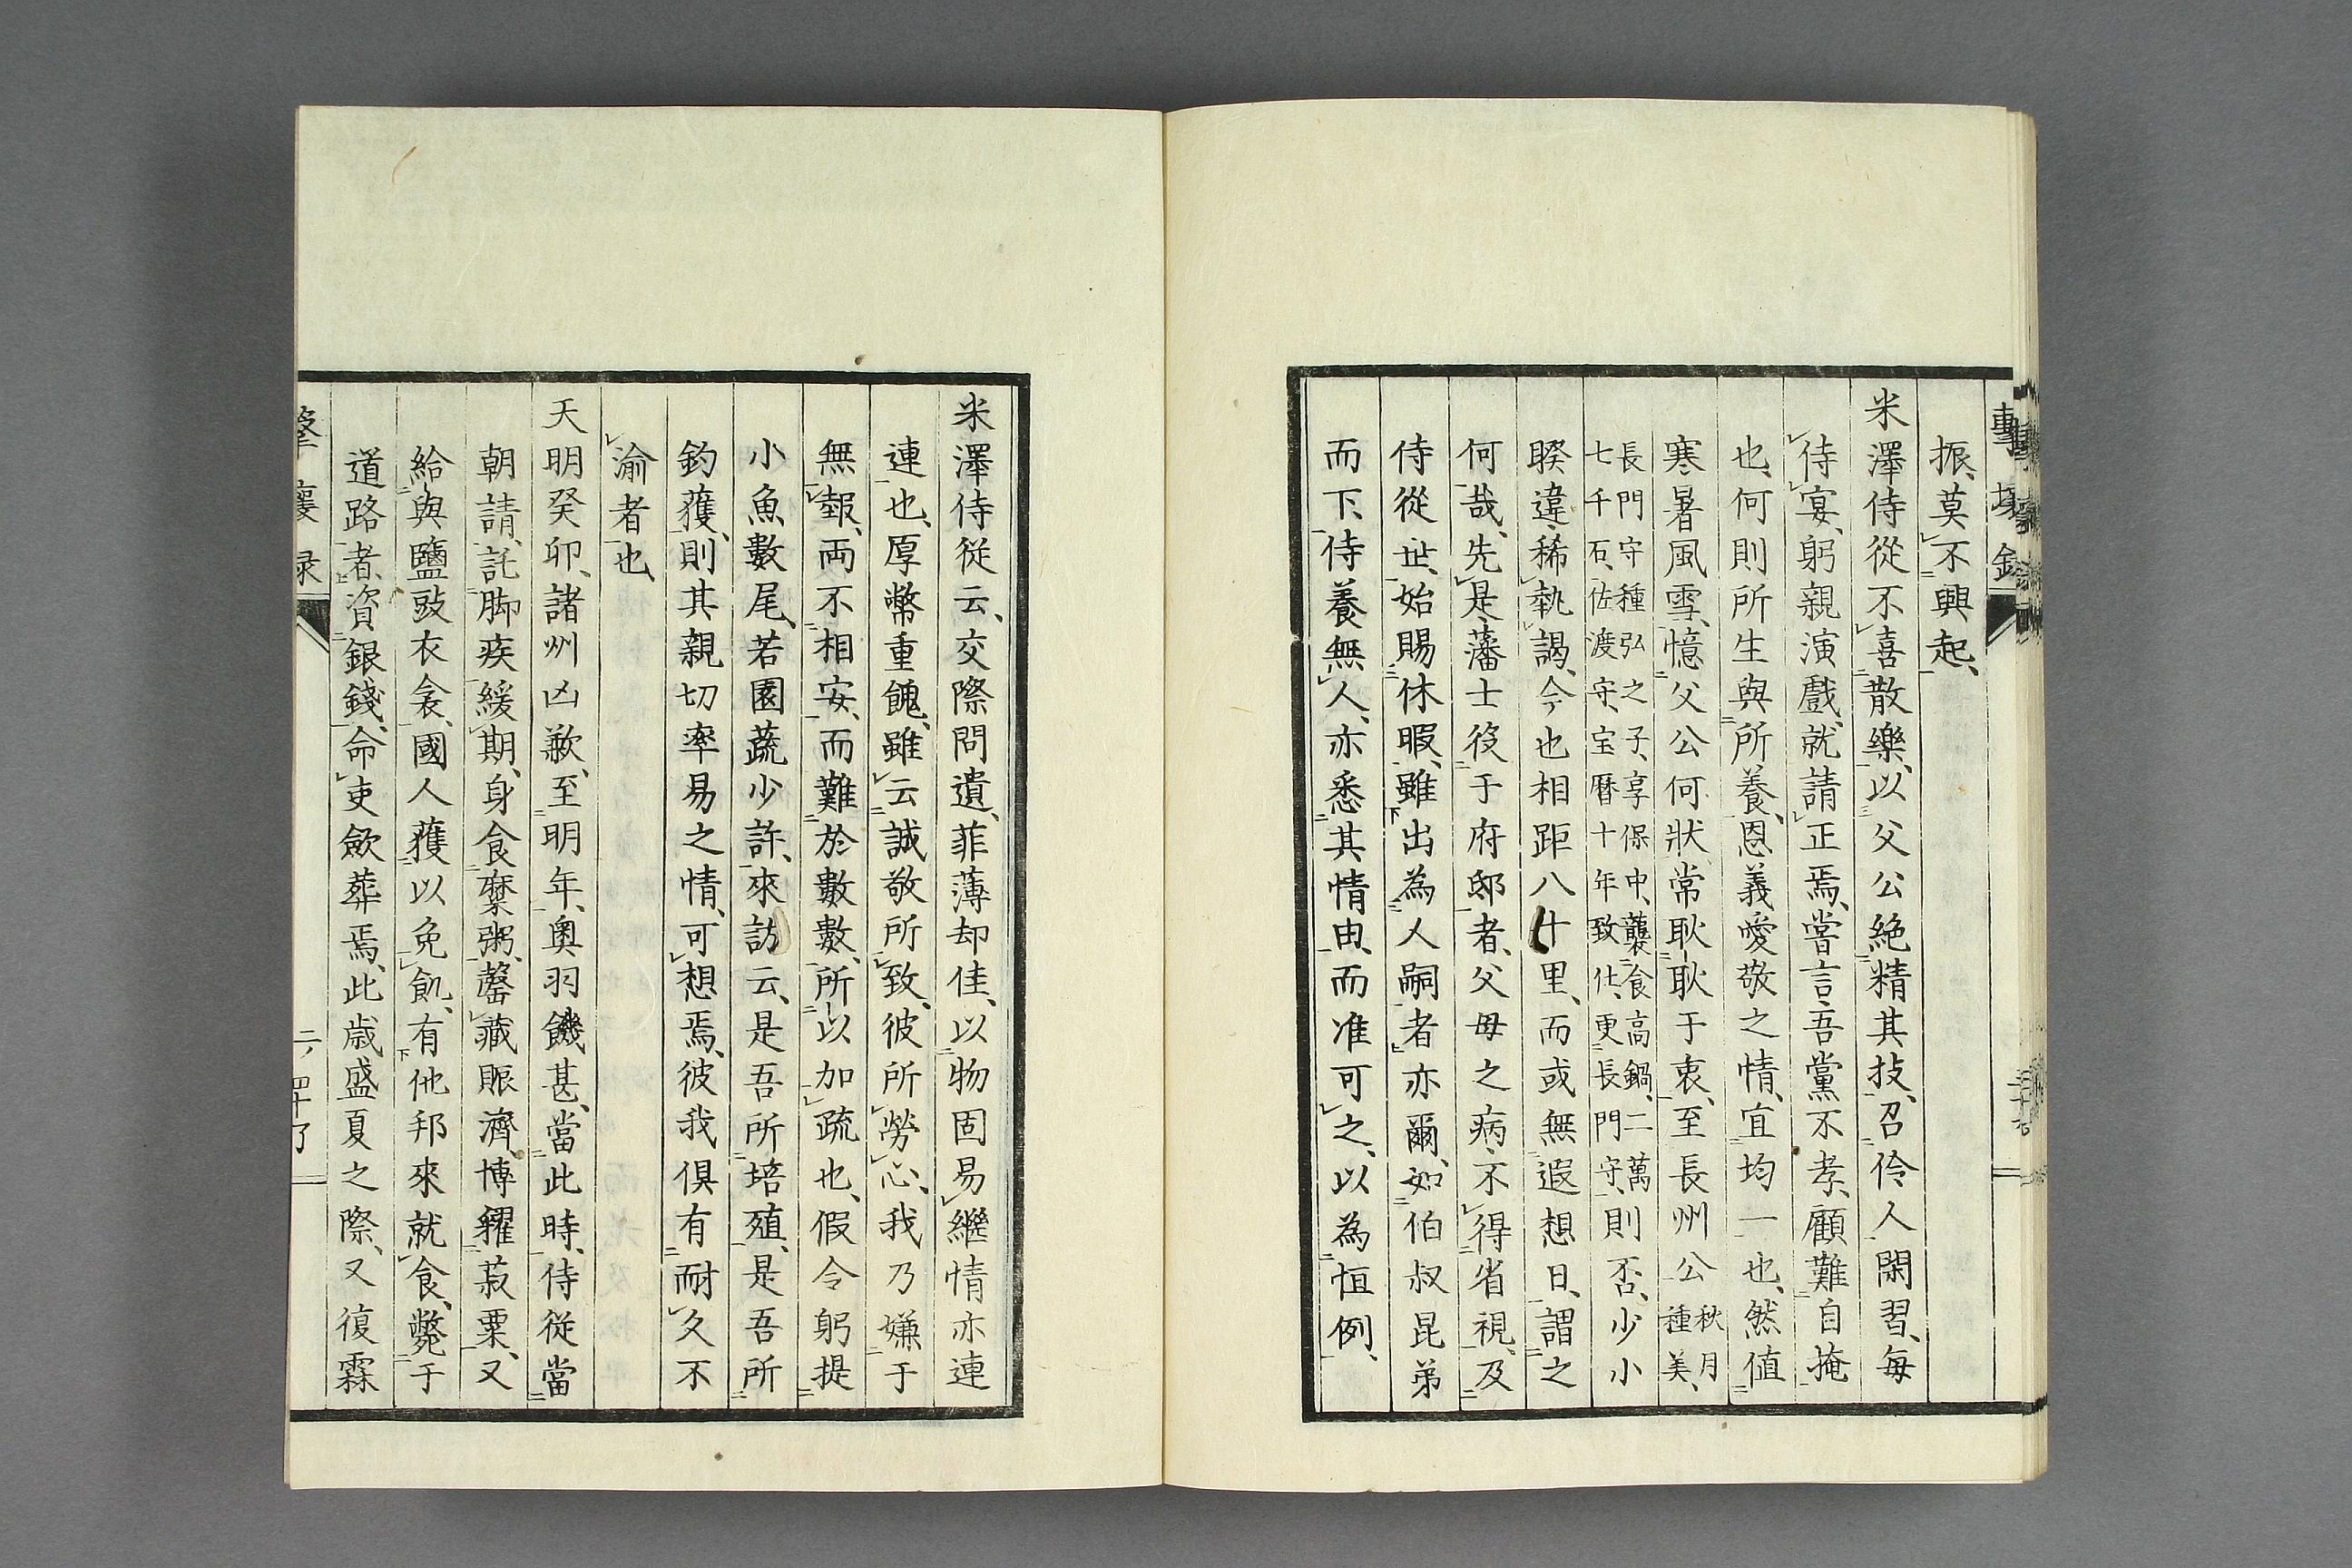 振、莫不興起、
米澤侍從不喜散樂、以父公絶精其技、召伶人閑習、每
侍宴、躬親演戲、就請正焉、嘗言、吾黨不孝、顧難自掩
也、何則所生與所養、恩義愛敬之情、宜均一也、然值
寒暑風雪、憶父公何狀、常耿耿于衷、至長州公秋月種美、
長門守種弘之子、享保中、襲食高鍋、二萬
七千石、佐渡守、宝曆十年致仕、更長門守、則否、少小
睽違、稀執謁、今也相距八十里、而或無遐想日、謂之
何哉、先是、藩士役于府邸者、父母之病、不得省視、及
侍從世、始賜休暇、雖出為人嗣者亦爾、如伯叔昆弟
而下、侍養無人、亦悉其情由、而准可之、以為恒例、
米澤侍從云、交際問遺、菲薄却佳、以物固易繼情亦連
連也、厚幣重餽、雖云誠敬所致、彼所勞心、我乃嫌于
無報、両不相安、而難於數數、所以加疏也、假令躬提
小魚數尾、若園蔬少許、來訪云、是吾所培殖、是吾所
釣獲、則其親切率易之情、可想焉、彼我俱有耐久不
渝者也、
天明癸卯、諸州凶歉、至明年、奧羽饑甚、當此時、侍從當
朝請、託脚疾緩期、身食糜粥、罄藏賑濟、博糴菽粟、又
給與鹽豉衣衾、國人獲以免飢、有他邦來就食、斃于
道路者、資銀錢、命吏斂葬焉、此歲盛夏之際、又復霖